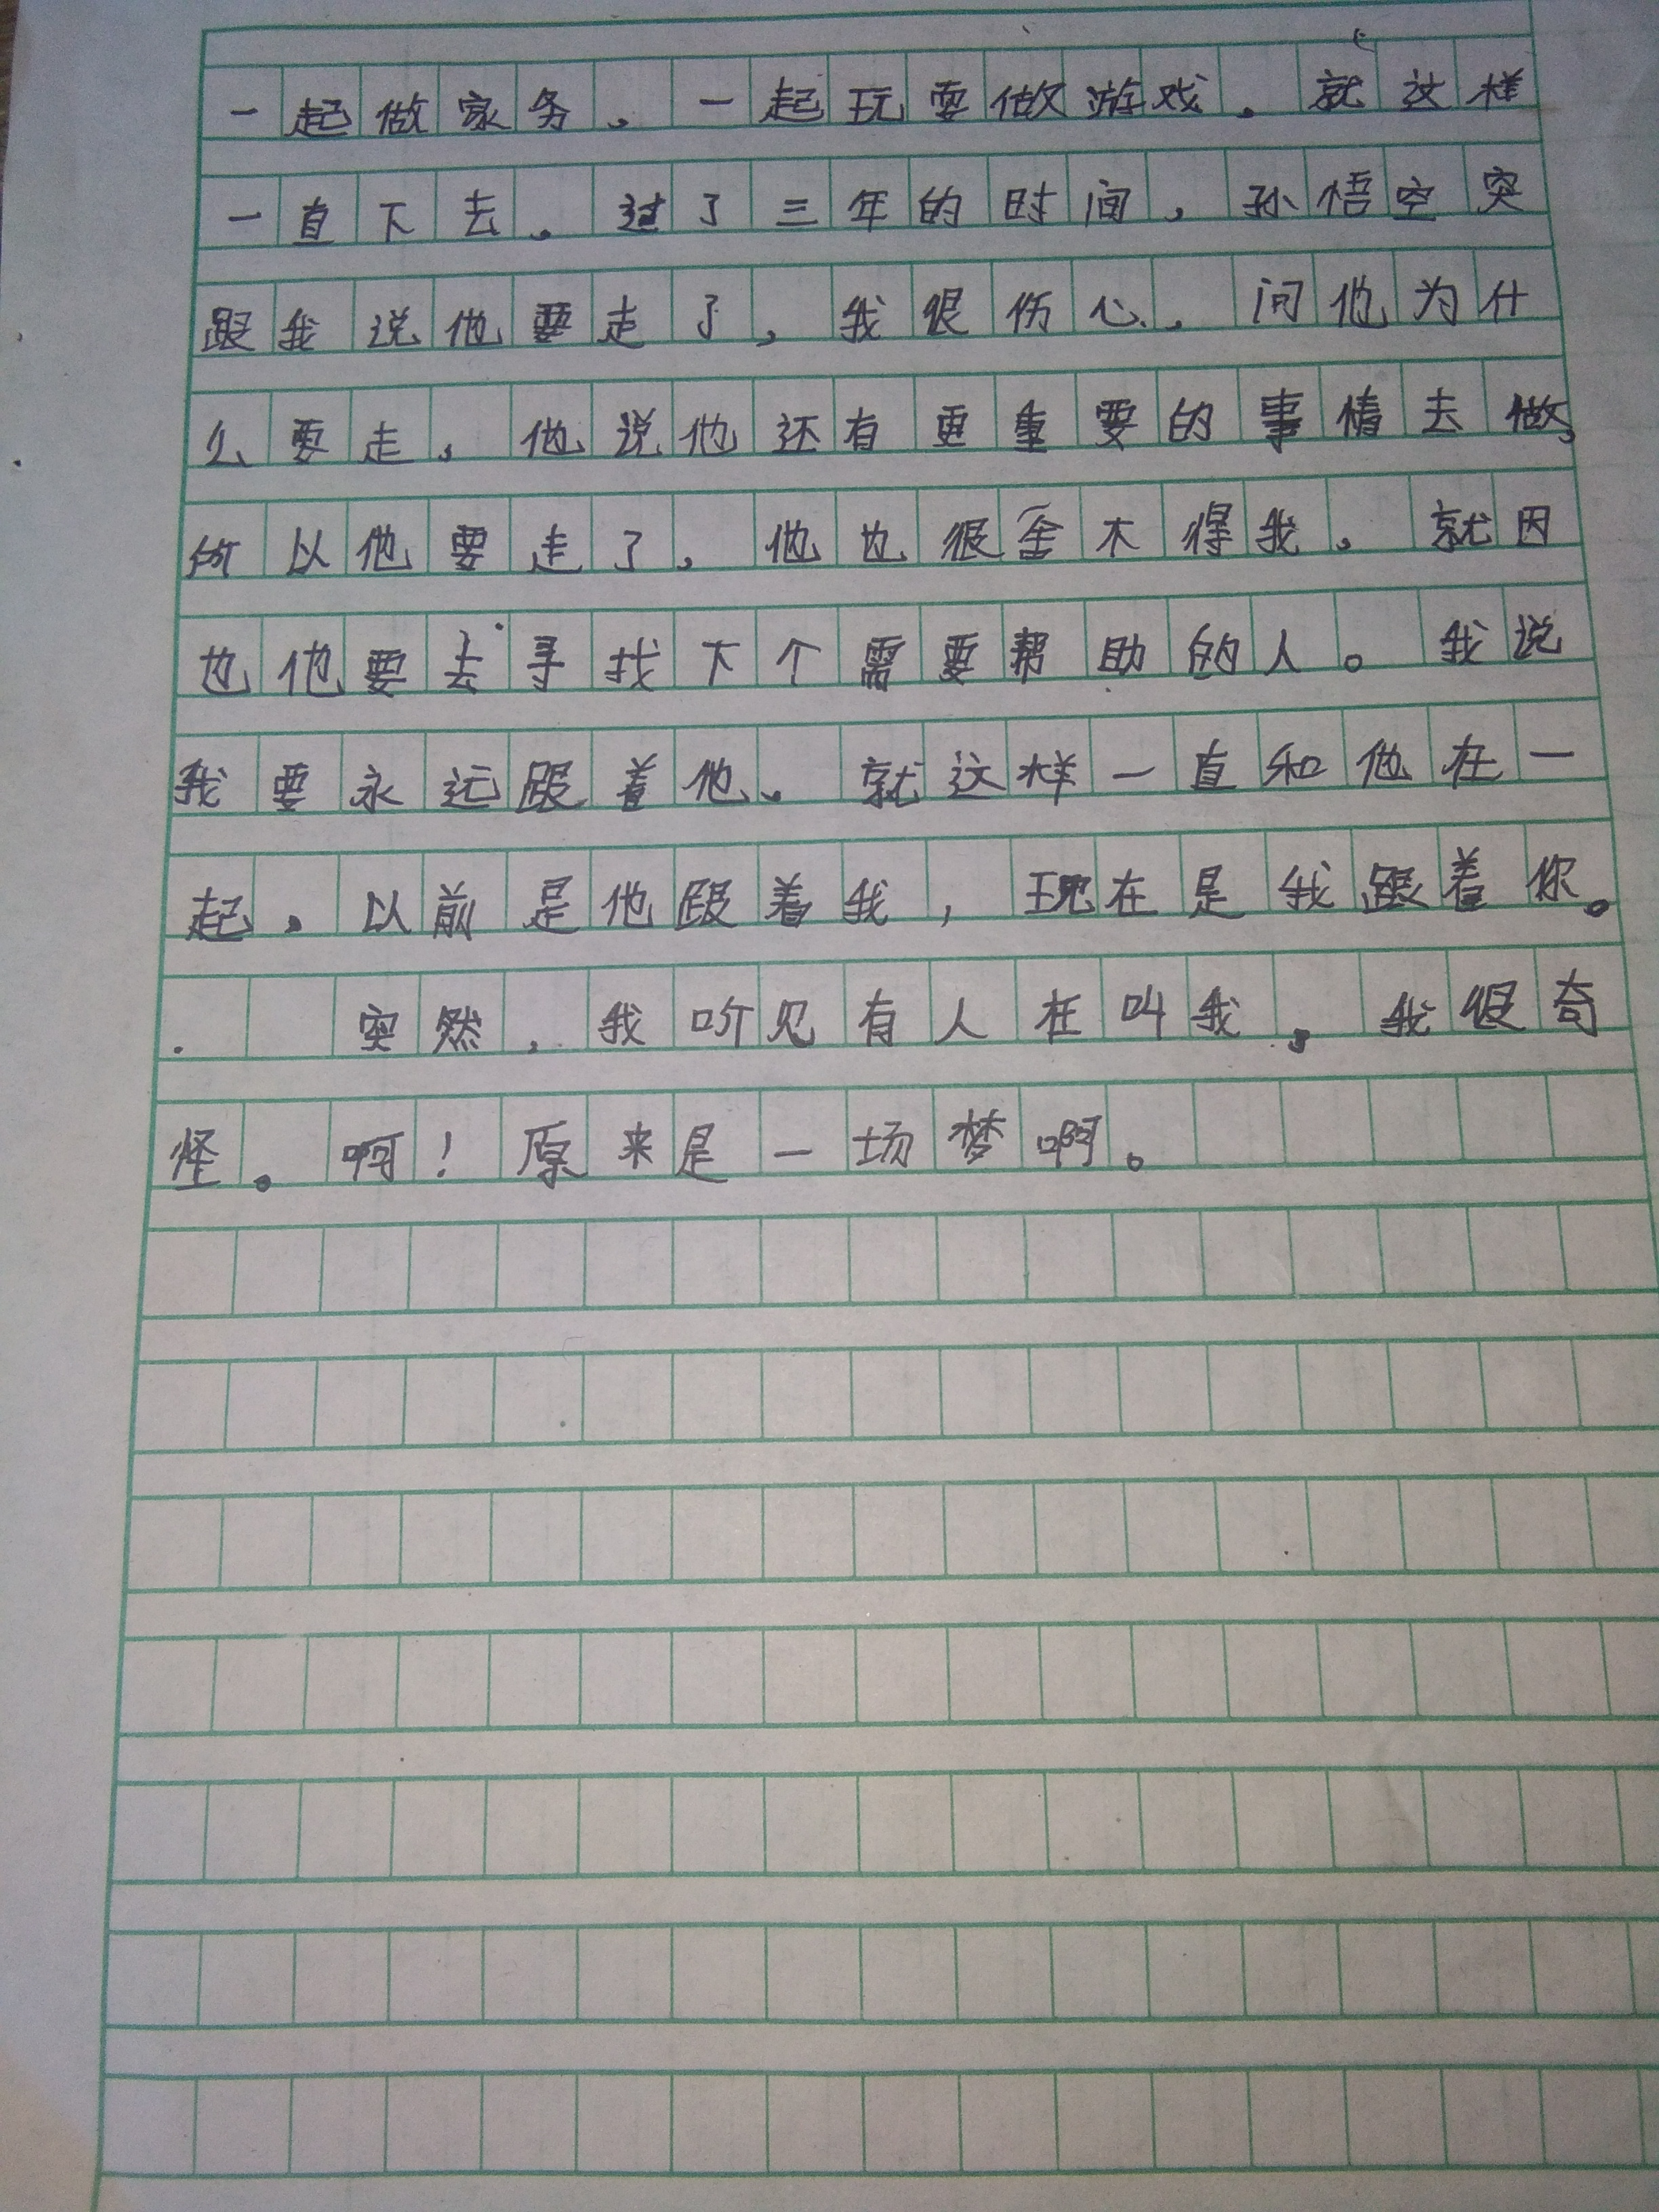 一起做家务。一起玩要做游戏。就这样
一直下去。过了三年的时间，孙悟空突
跟我说他要走了，我很伤心。问他为什
么要走。他说他还有更重要的事情去做，
所以他要走了。他也很舍不得我。就因
也他要去寻找下个需要帮助的人。我说
我要永远跟着他。就这样一直和他在一
起。以前是他跟着我，现在是我跟着你。
突然，我听见有人在叫我，我很奇
怪。啊！原来是一场梦啊。